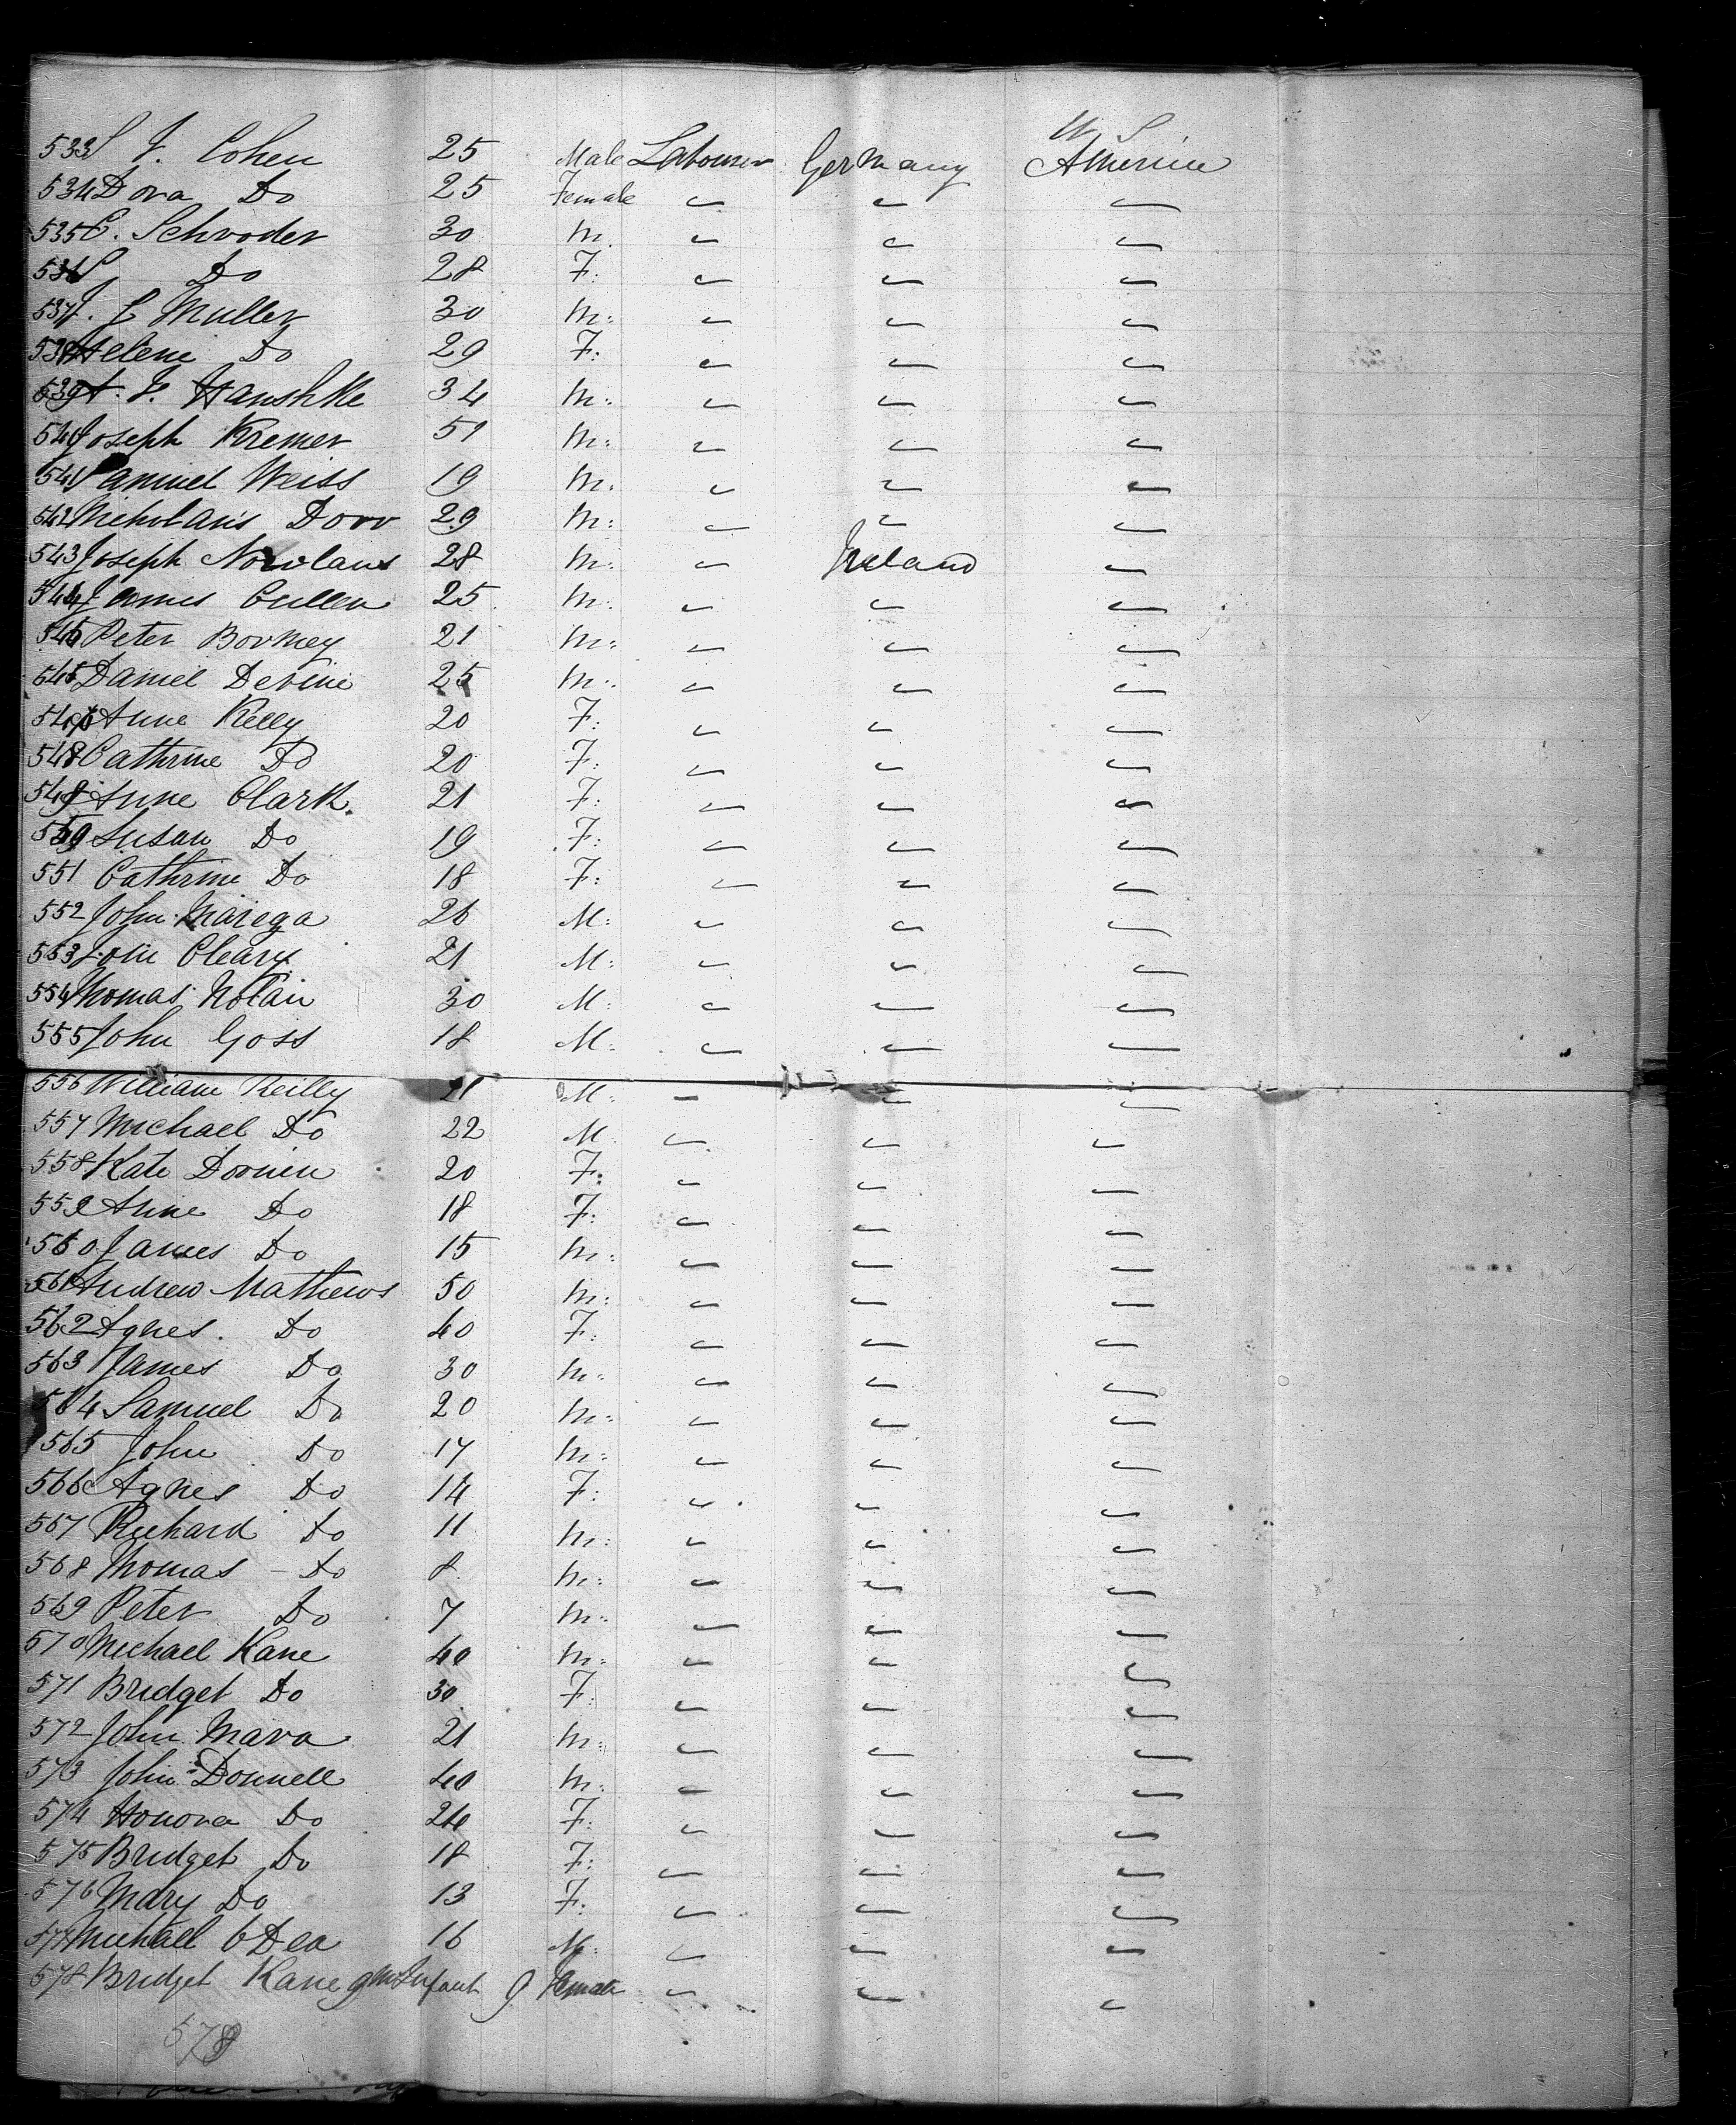 U. S.
533 S J. Cohen 25 Male Labourer Germany America
534 Dora Do 25 Female " " "
535 C. Schroder 30 M. " " "
536 S Do 28 F: " " "
537 J. J Muller 30 M: " " "
538 Helene Do 29 F: " " "
539 A. J. Hanshke 34 M: " " "
540 Joseph Kremer 51 M: " " "
541 Samuel Weiss 19 M: " " "
542 Nicholaus Dorr 29 M: " " "
543 Joseph Nowlans 28 M: " Ireland "
544 James Cullen 25 M: " " "
546 Peter Bormey 21 M: " " "
545 Daniel Devine 25 M: " " "
Anne Kelly 20 F: " " "
548 Cathrine Do 20 F: " " "
549 Anne Clark. 21 F: " " "
550 Susan Do 19 F: " " "
551 Cathrine Do 18 F: " " "
552 John Marega 26 M: " " "
553 John Cleary 21 M: " " "
554 Thomas Nolan 30 M: " " "
555 John Goss 18 M: " " "
556 William Reilly 21 M: " " "
557 Michael Do 22 M " " "
558 Kate Dornien 20 F: " " "
559 Anne Do 18 F: " " "
560 James Do 15 M: " " "
561 Andrew Mathews 50 M: " " "
562 Agnes. Do 40 F: " " "
563 James Do 30 M: " " "
564 Samuel Do 20 M: " " "
565 John Do 17 M: " " "
566 Agnes Do 14 F: " " "
567 Richard Do 11 M: " " "
568 Thomas - Do 8 M: " " "
569 Peter Do 7 M: " " "
570 Michael Kane 40 M: " " "
571 Bridget Do 30 F: " " "
572 John Mara 21 M: " " "
573 John Donnell 40 M: " " "
574 Honora Do 24 F: " " "
575 Bridget Do 18 F: " " "
576 Mary Do 13 F: " " "
577 Michael O Dea 16 M: " " "
578 Bridget Kane 9m Infant 9 Female " " "
578